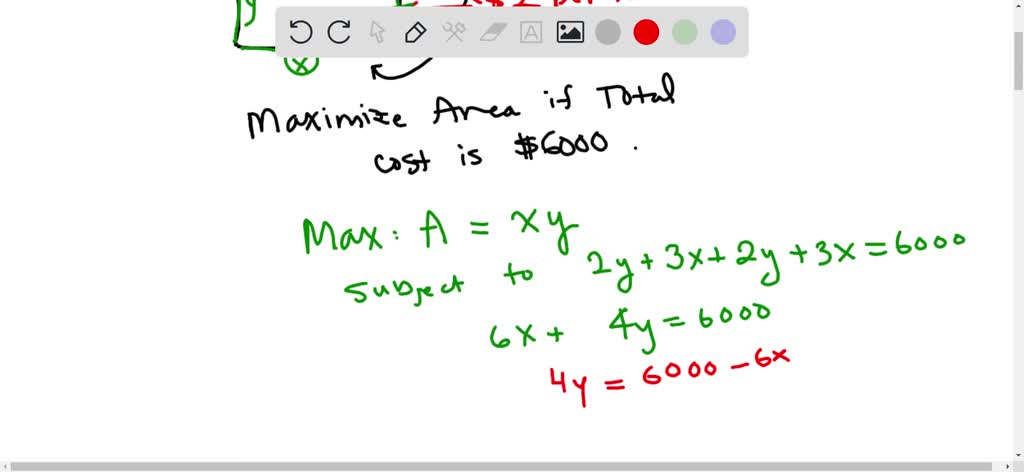 y
x
A
Maximize Area if Total
cost is $6000.
Max: A = xy
subject to 2y + 3x + 2y + 3x = 6000
6x + 4y = 6000
4y = 6000 - 6x